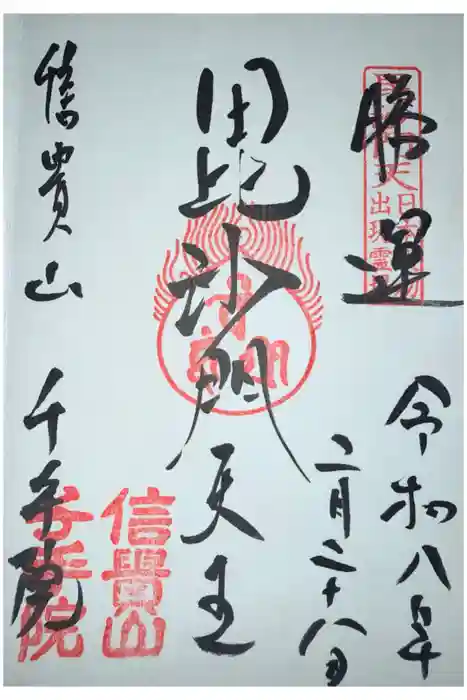 勝運
令和八年
二月二十八日
毘沙門天王
信貴山 千手院
出現霊
信貴山
千手院